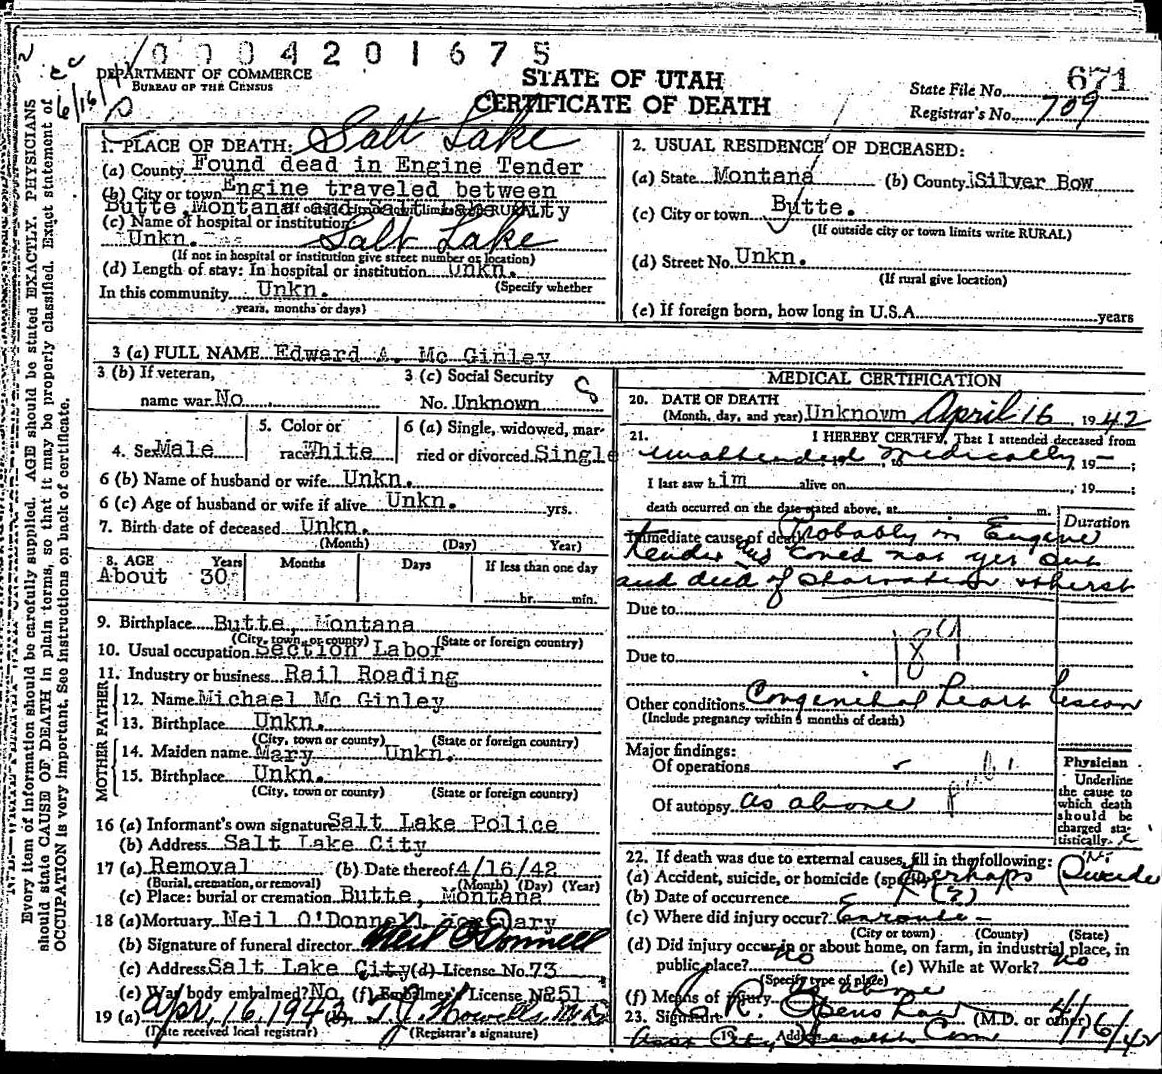 0004201675
DEPARTMENT OF COMMERCE
BUREAU OF THE CENSUS
STATE OF UTAH
CERTIFICATE OF DEATH
State File No. 671
Registrar's No. 709
Every item of information should be carefully supplied. AGE should be stated EXACTLY. PHYSICIANS
should state CAUSE OF DEATH in plain terms, so that it may be properly classified. Exact statement of
OCCUPATION is very important. See instructions on back of certificate.
1. PLACE OF DEATH: Salt Lake
(a) County Found dead in Engine Tender
(b) City or town Engine traveled between
Butte, Montana and Salt Lake City
(c) Name of hospital or institution:
Unkn. Salt Lake
(If not in hospital or institution give street number or location)
(d) Length of stay: In hospital or institution Unkn.
(Specify whether
In this community Unkn.
years, months or days)
2. USUAL RESIDENCE OF DECEASED:
(a) State Montana (b) County Silver Bow
(c) City or town Butte.
(If outside city or town limits write RURAL)
(d) Street No. Unkn.
(If rural give location)
(e) If foreign born, how long in U.S.A. years
3 (a) FULL NAME Edward A. Mc Ginley
3 (b) If veteran,
name war No
3 (c) Social Security
No. Unknown
4. Sex Male
5. Color or
race White
6 (a) Single, widowed, mar-
ried or divorced Single
6 (b) Name of husband or wife Unkn.
6 (c) Age of husband or wife if alive Unkn. yrs.
7. Birth date of deceased Unkn.
(Month) (Day) Year)
8. AGE Years Months Days If less than one day
About 30 hr. min.
9. Birthplace Butte, Montana
(City, town, or county) (State or foreign country)
10. Usual occupation Section Labor
11. Industry or business Rail Roading
FATHER
12. Name Michael Mc Ginley
13. Birthplace Unkn.
(City, town or county) (State or foreign country)
MOTHER
14. Maiden name Mary Unkn.
15. Birthplace Unkn.
(City, town or county) (State or foreign country)
16 (a) Informant's own signature Salt Lake Police
(b) Address Salt Lake City
17 (a) Removal (b) Date thereof 4/16/42
(Burial, cremation, or removal) (Month) (Day) (Year)
(c) Place: burial or cremation Butte, Montana
18 (a) Mortuary Neil O'Donnell
(b) Signature of funeral director Neil O'Donnell
(c) Address Salt Lake City (d) License No. 73
(e) Was body embalmed? No (f) Embalmer's License No. 251
19 (a) Apr. 16, 1942 (b) T.J. Howells M.D.
(Date received local registrar) (Registrar's signature)
MEDICAL CERTIFICATION
20. DATE OF DEATH
(Month, day, and year) Unknown April 16, 1942
21. I HEREBY CERTIFY, That I attended deceased from
unattended medically, 19 ;
I last saw him alive on , 19 ;
death occurred on the date stated above, at m.
Duration
Immediate cause of death Probably in Engine
tender and could not get out
and died of starvation & thirst
Due to
Due to
Other conditions Congenital heart lesion
(Include pregnancy within 6 months of death)
Major findings:
Of operations -
Of autopsy as above
Physician
Underline
the cause to
which death
should be
charged sta-
tistically.
22. If death was due to external causes, fill in the following:
(a) Accident, suicide, or homicide (specify) Perhaps Suicide
(b) Date of occurrence (?)
(c) Where did injury occur? Enroute -
(City or town) (County) (State)
(d) Did injury occur in or about home, on farm, in industrial place, in
public place? no (e) While at Work? no
(Specify type of place)
(f) Means of injury as above
23. Signature (M.D. or other) 4/16/42